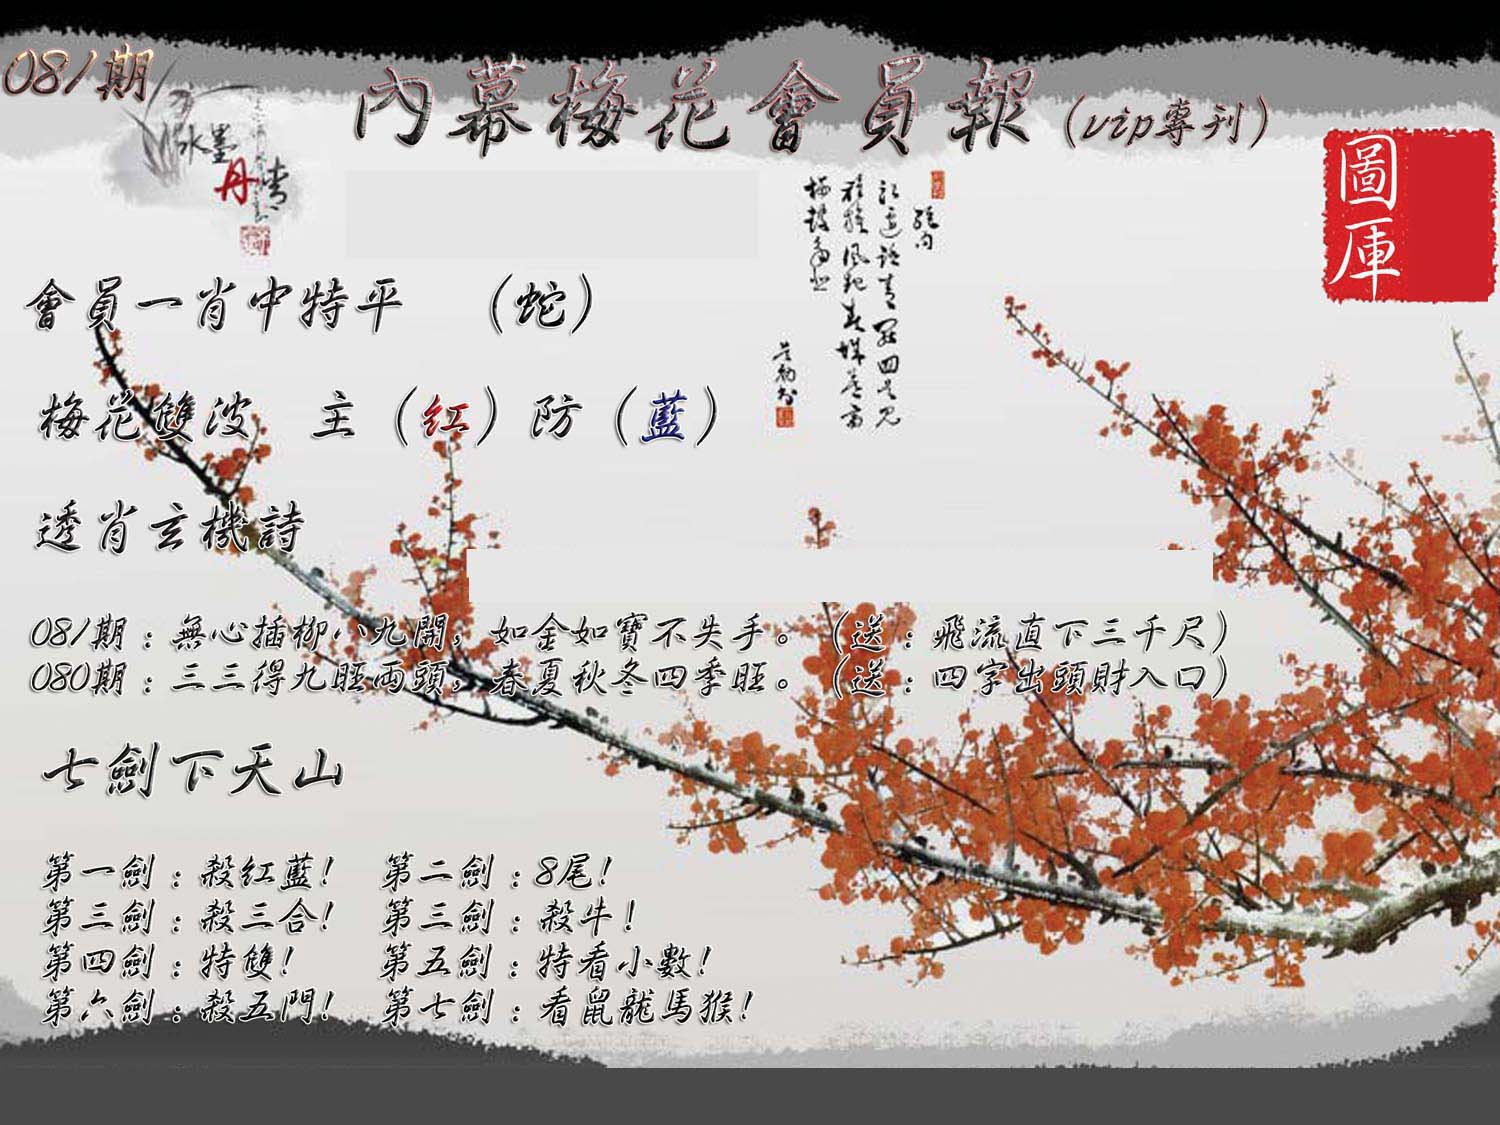 081期
內幕梅花會員報(vip專刊)
水墨
丹青
圖庫
會員一肖中特平 (蛇)
梅花雙波 主(紅)防(藍)
透肖玄機詩
081期:無心插柳八九開,如金如寶不失手。(送:飛流直下三千尺)
080期:三三得九旺兩頭,春夏秋冬四季旺。(送:四字出頭財入口)
七劍下天山
第一劍:殺紅藍! 第二劍:8尾!
第三劍:殺三合! 第三劍:殺牛!
第四劍:特雙! 第五劍:特看小數!
第六劍:殺五門! 第七劍:看鼠龍馬猴!